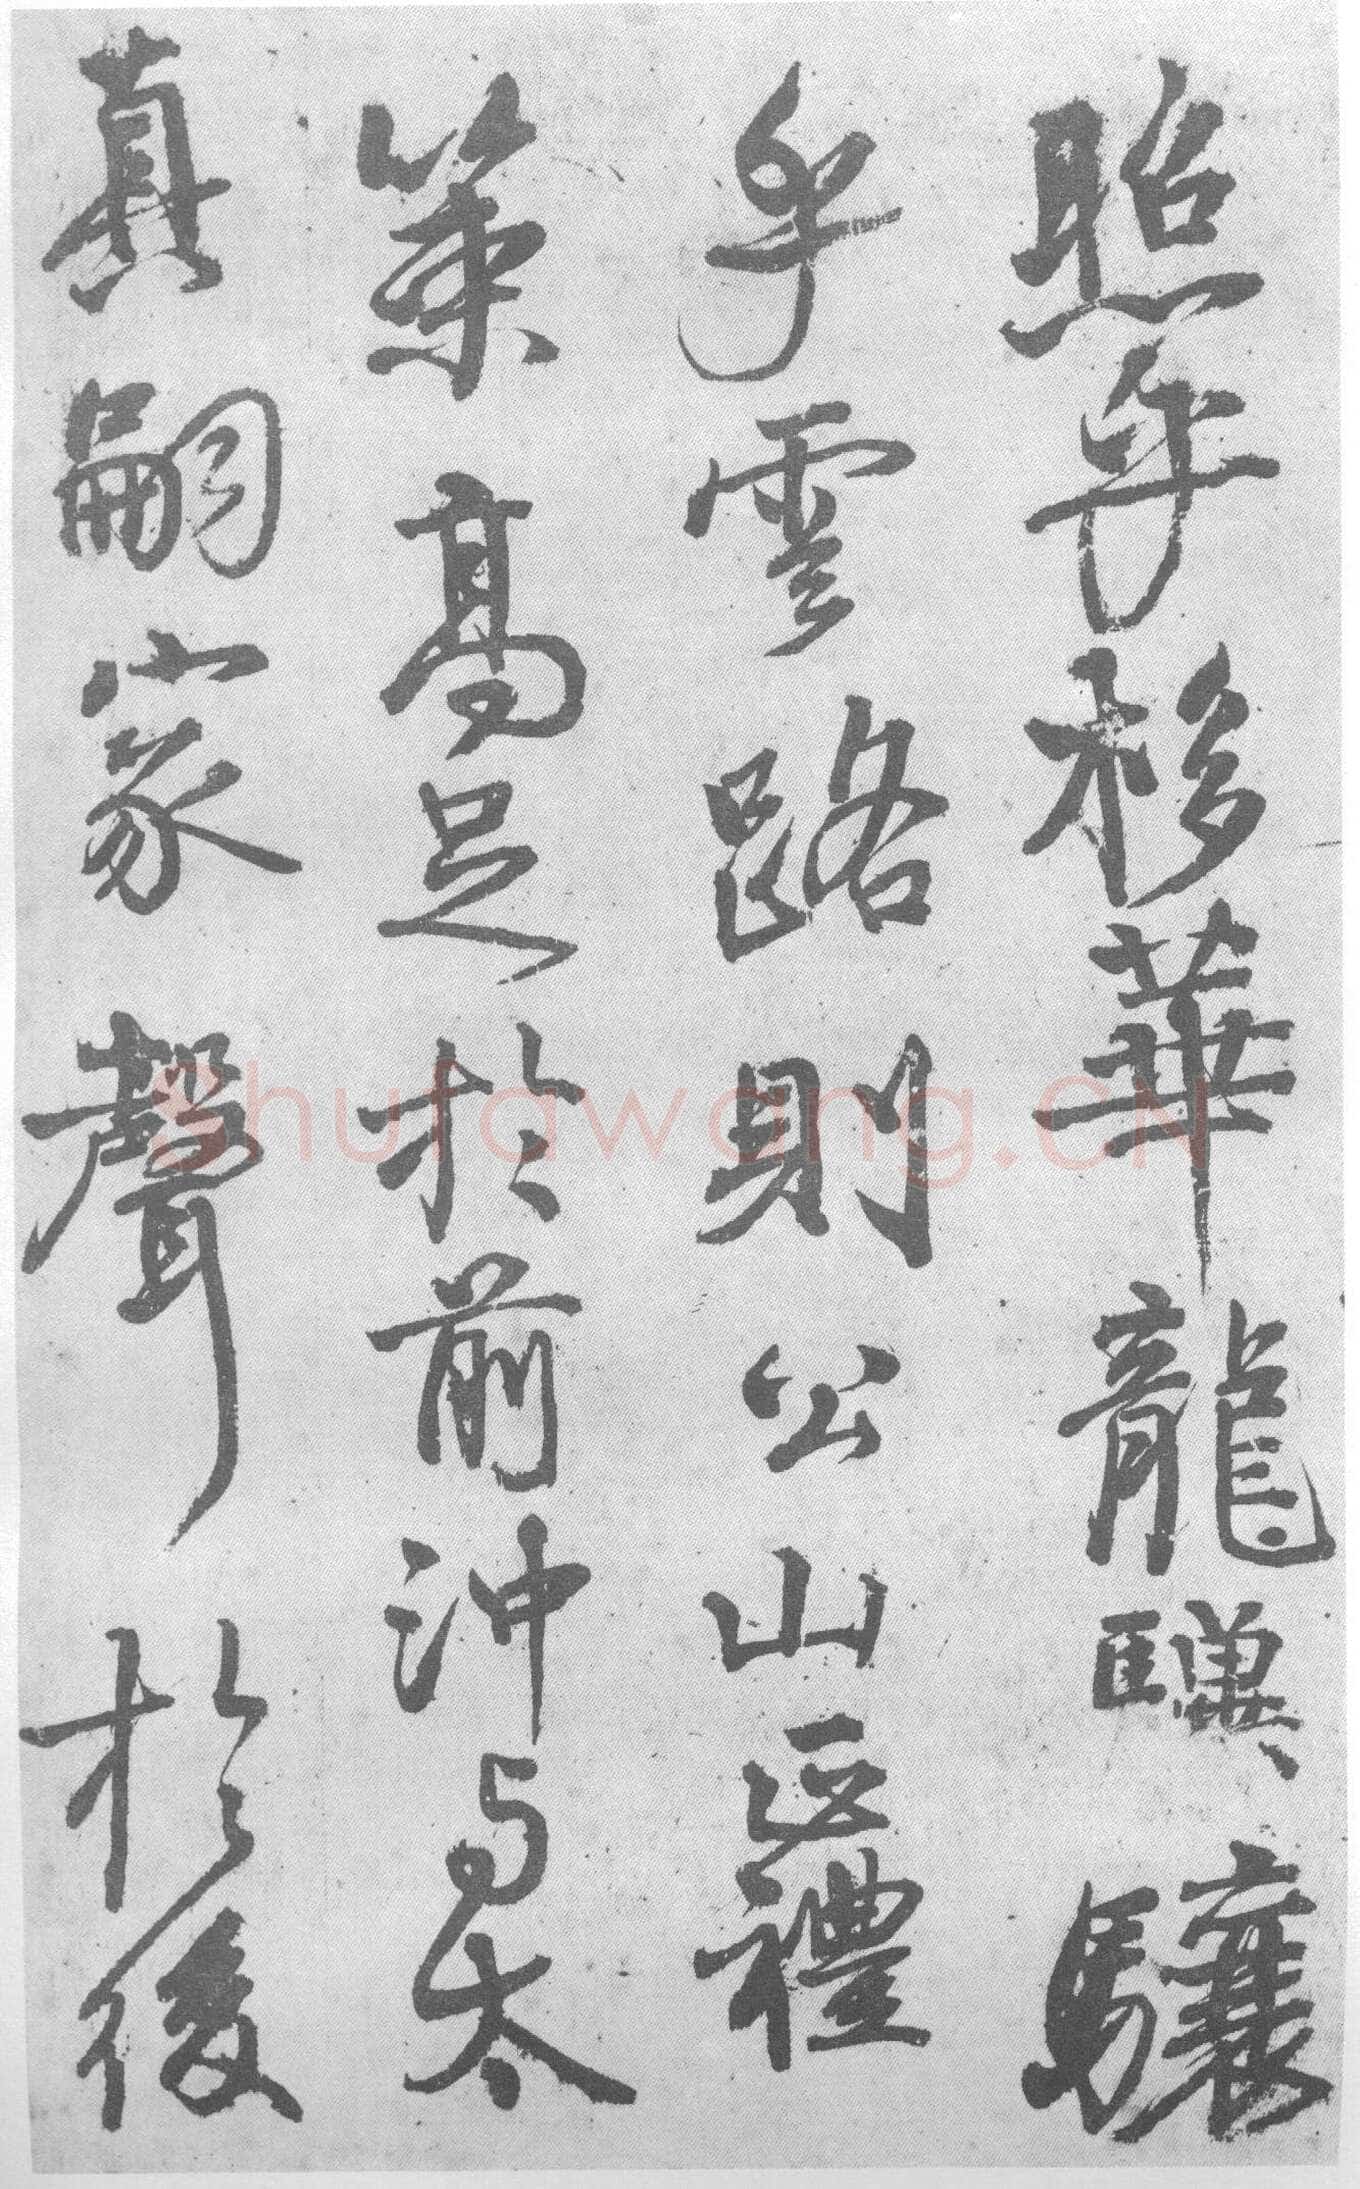 照乎栘華龍驥驤
乎雲路則公山正禮
策高足於前沖与太
真嗣家聲於後
Shufawang.CN